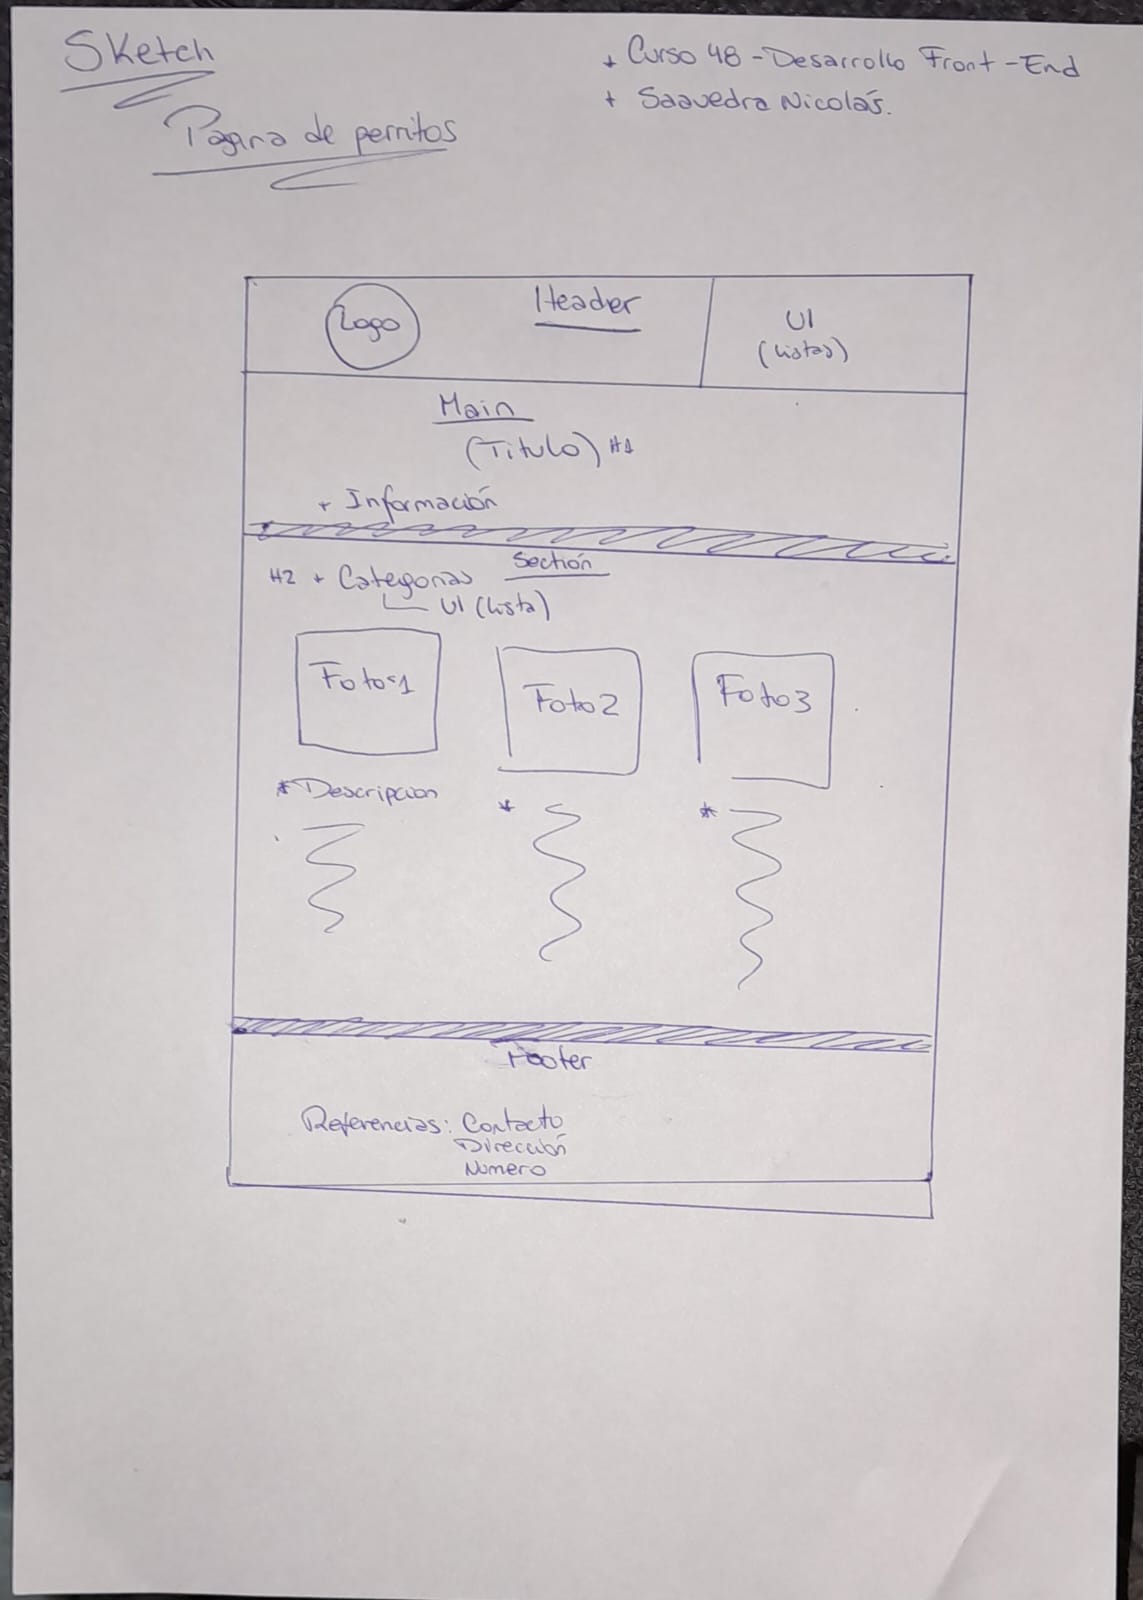 Sketch
+ Curso 48 - Desarrollo Front-End
+ Saavedra Nicolás.
Pagina de perritos
Logo
Header
UI
(Listas)
Main
(Titulo) H1
+ Información
Sectión
H2 + Categorias
UI (Lista)
Foto 1
Foto 2
Foto 3
* Descripcion
*
*
Footer
Referencias: Contacto
Dirección
Numero